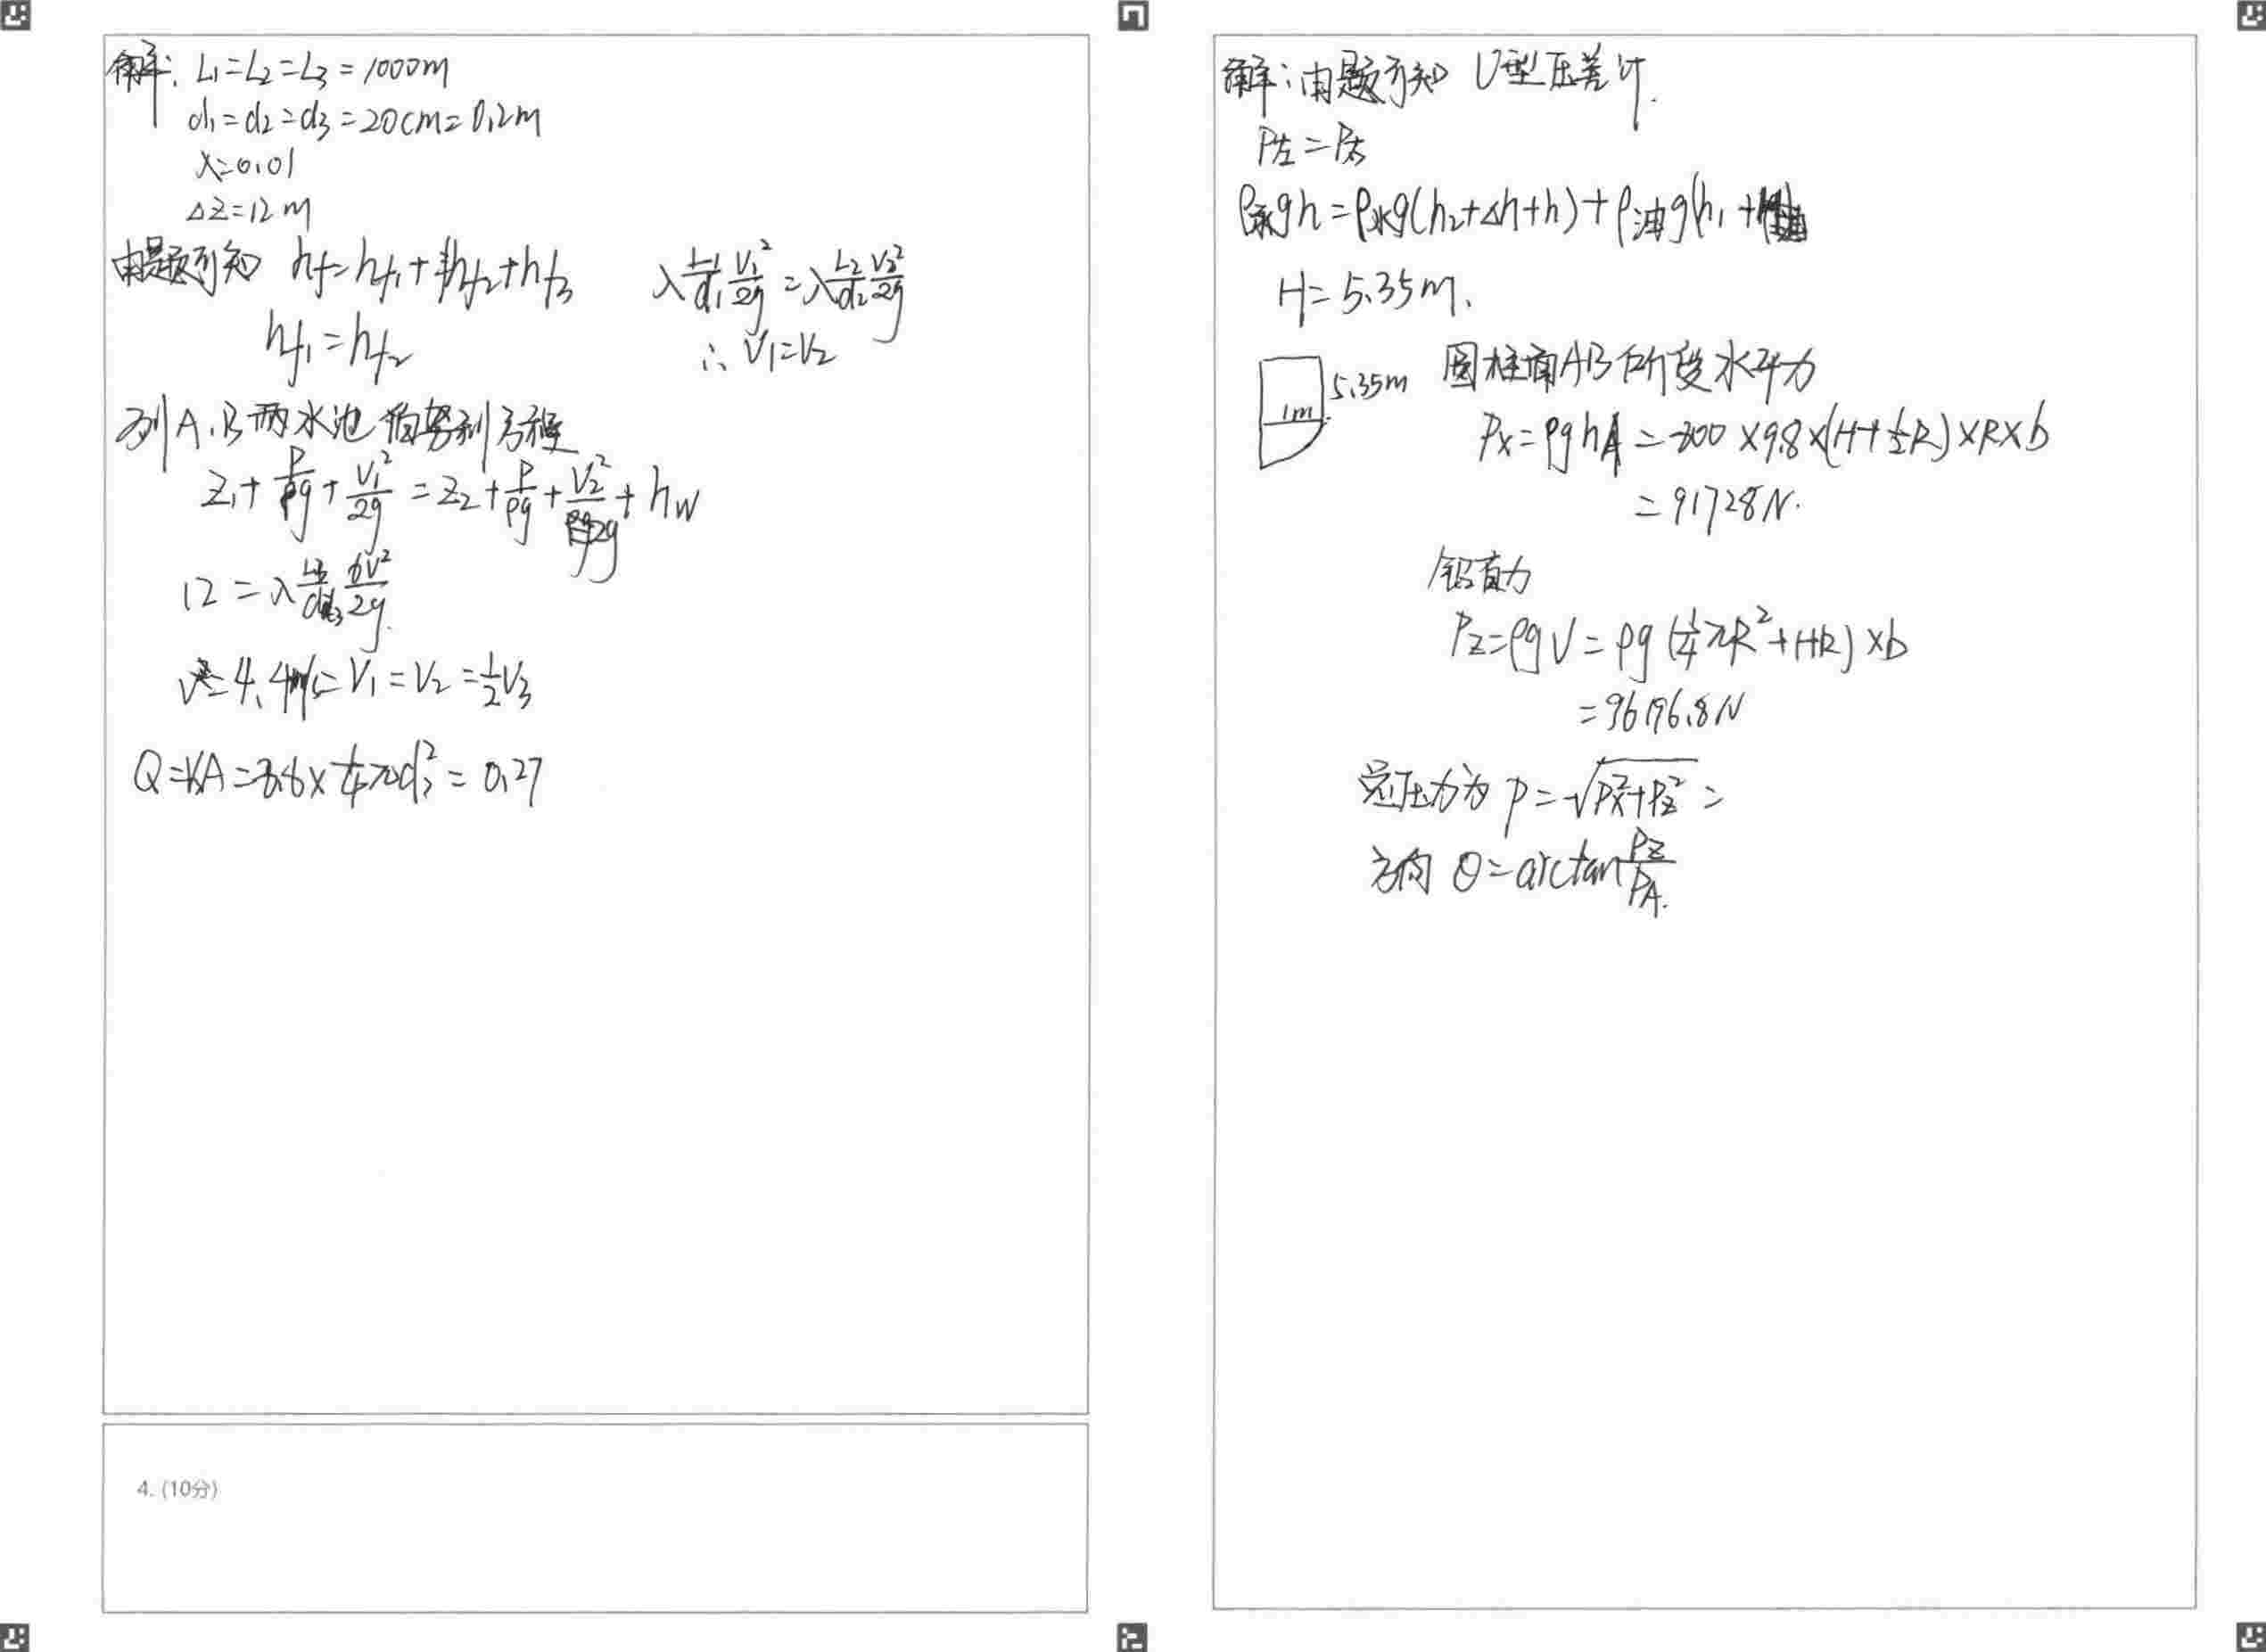 解: L₁=L₂=L₃=1000m
d₁=d₂=d₃=20cm=0.2m
λ=0.01
ΔZ=12m
由题可知 hf=hf₁+hf₂+hf₃ λ L₁/d₁ V₁²/2g = λ L₂/d₂ V₂²/2g
hf₁=hf₂ ∴ V₁=V₂
列A、B两水池伯努利方程
Z₁+P/ρg+V₁²/2g=Z₂+P/ρg+V₂²/2g+hw
12=λ
=V₁=V₂=½V₃
= 0.27
4. (10分)
解:由题可知 U型压差计.
P左=P右
ρ汞gh=ρ水g(h₂+Δh+h)+ρ油g(h₁+
H=5.35m.
5.35m
1m
圆柱面AB所受水平力
Px=ρghA=800×9.8×(H+½R)×R×b
=91728N.
铅直力
Pz=ρgV=ρg(¼πR²+HR)×b
总压力为 P=√Px²+Pz² =
方向 θ=arctan Pz/PA.